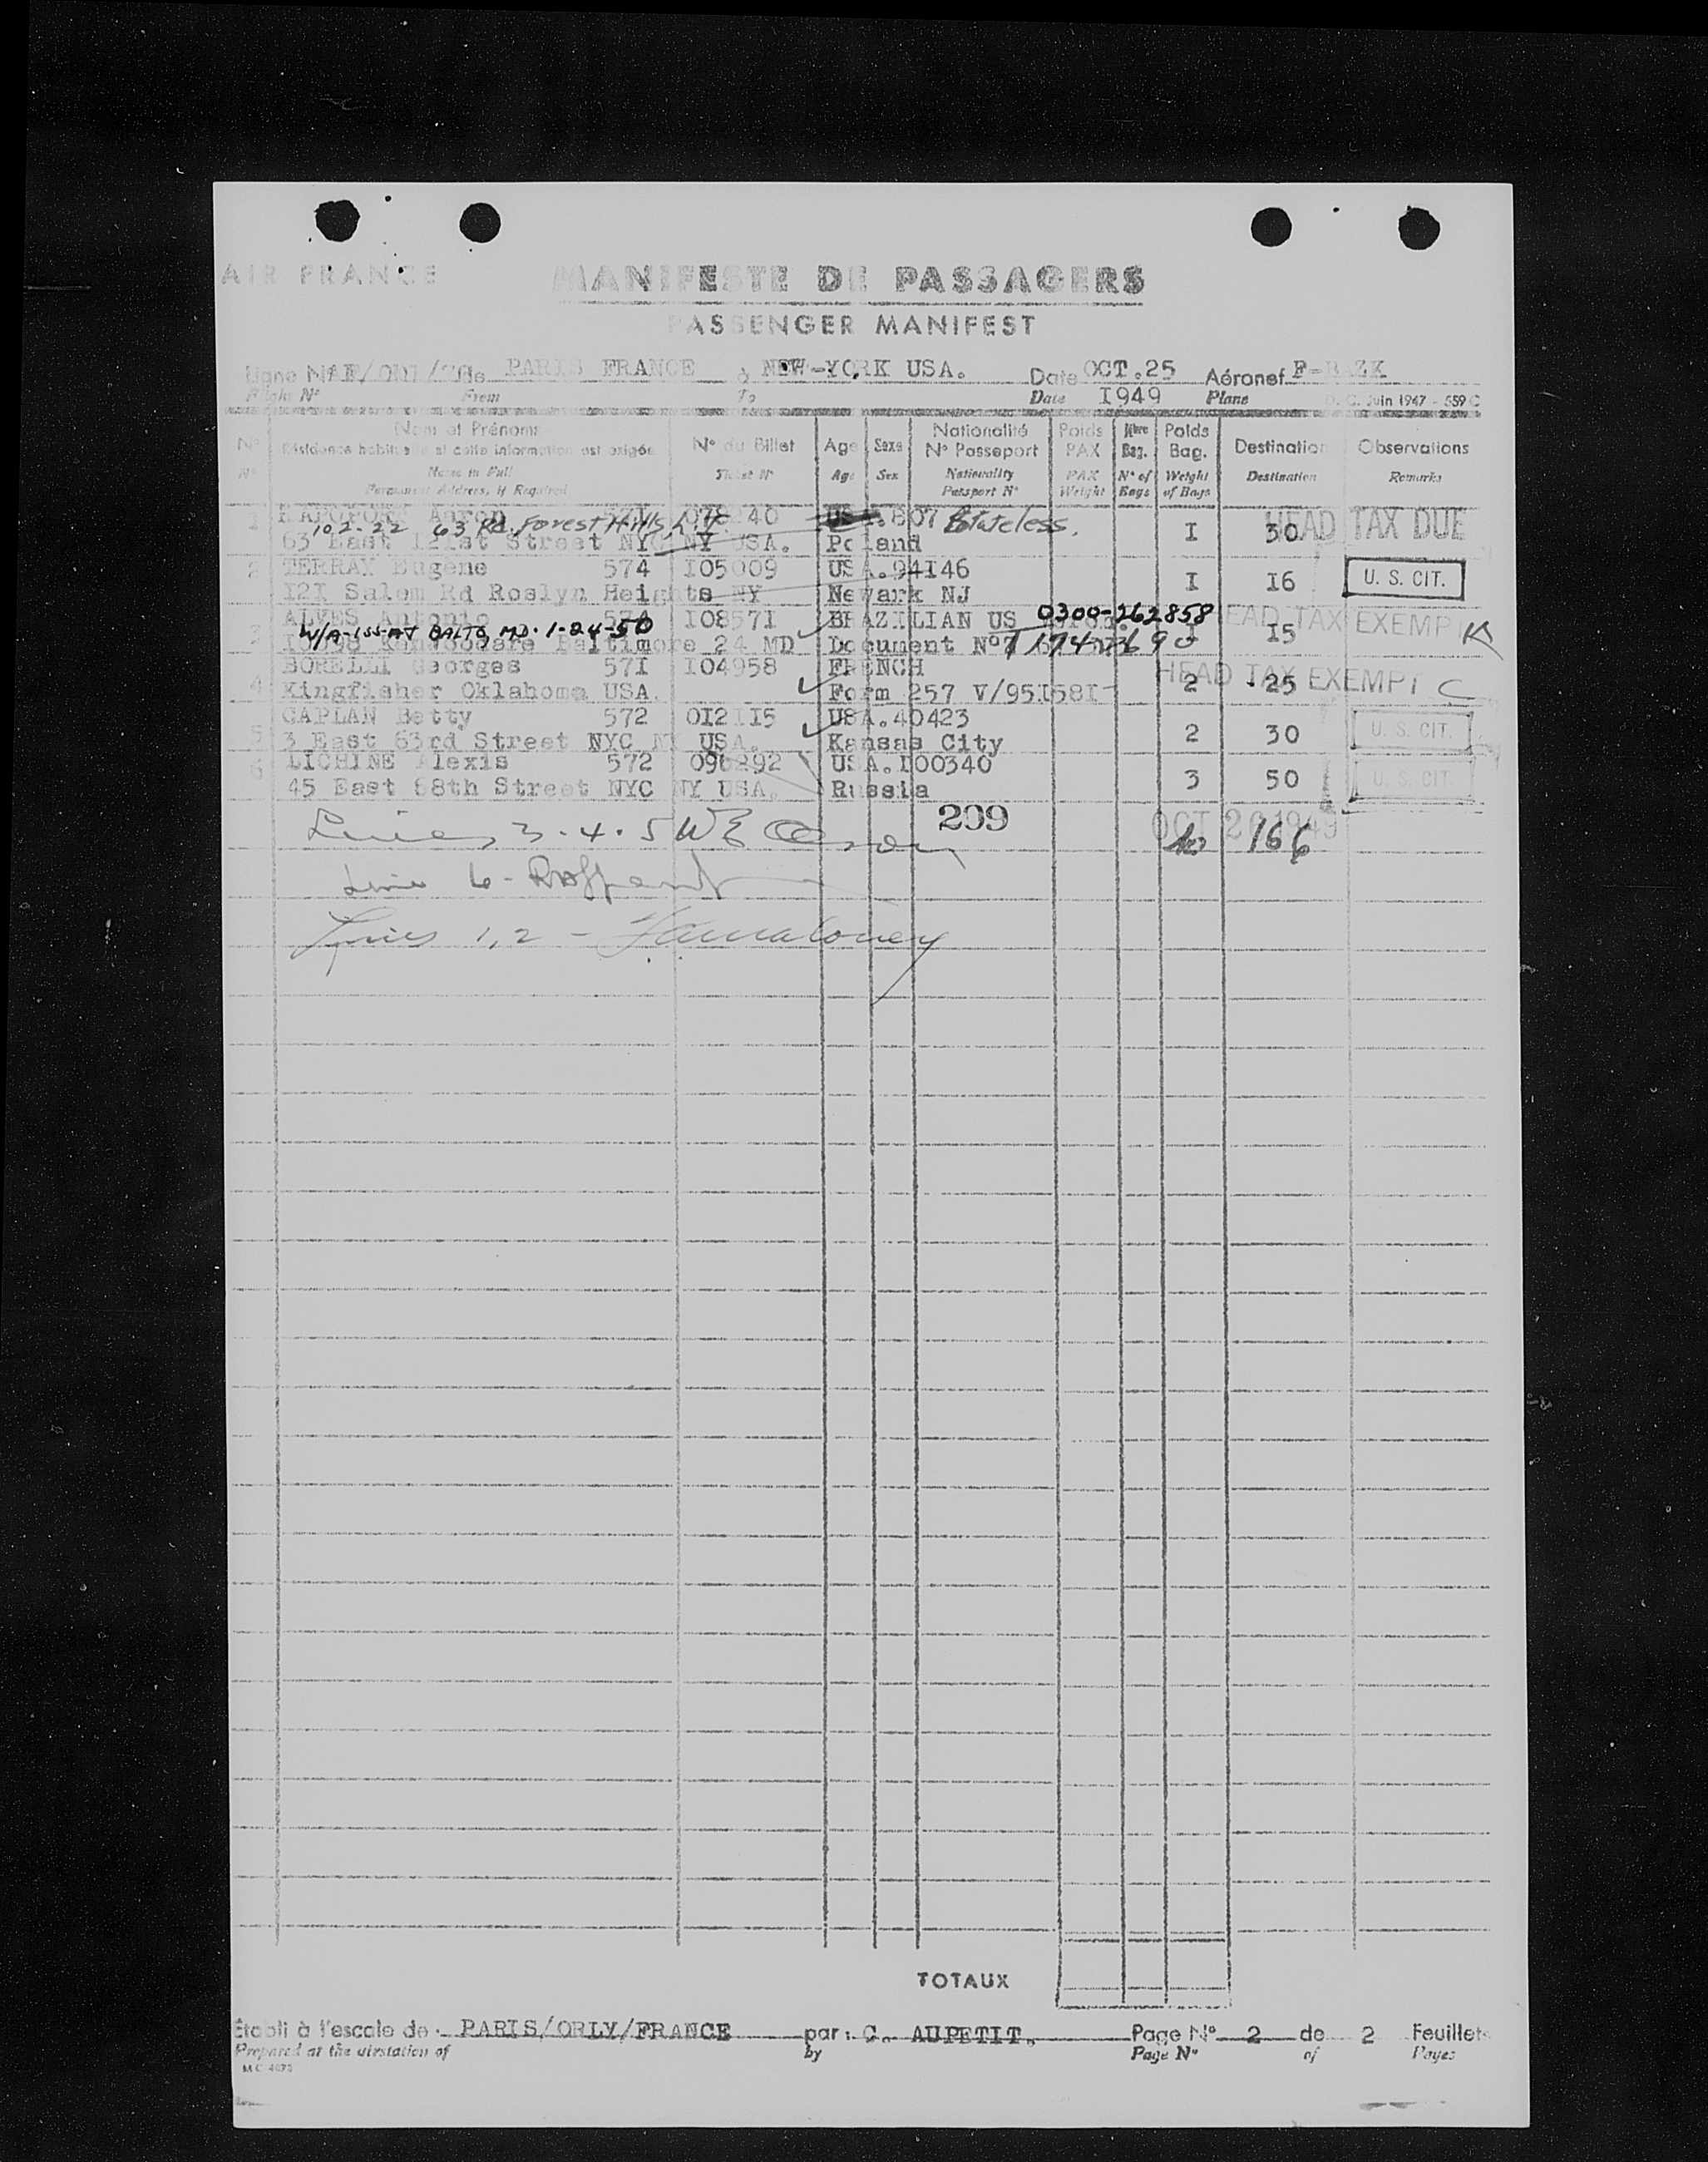 AIR FRANCE
MANIFESTE DE PASSAGERS
PASSENGER MANIFEST
Ligne de PARIS FRANCE à NEW-YORK USA. Date OCT.25 Aéronef
Flight N° From To Date I949 Plane D. C. Juin 1947 - 559 C
N° Nom et Prénoms N° du Billet Age Sexe Nationalité Poids Nbre Poids Destination Observations
Résidence habituelle si cette information est exigée N° Passeport PAX Bag. Bag.
N° Name in Full Ticket N° Age Sex Nationality PAX N° of Weight Destination Remarks
Permanent Address, If Required Passport N° Weight Bags of Bags
1 571 Stateless. HEAD TAX DUE
102-22 63 Rd. Forest Hills, L.I. I 30
63 East I2Ist Street NYC NY USA. Poland
2 TERRAY Eugene 574 I05009 USA.94I46
I2I Salem Rd Roslyn Heights NY Newark NJ I I6 U. S. CIT.
3 ALVES Antonio 574 I0857I BRAZILIAN US 0300-262858 HEAD TAX EXEMPT
W/A-ISS-AT BALTO, MD. 1-24-50 I I5
Baltimore 24 MD Document N°
BORELLI Georges 57I I04958 FRENCH HEAD TAX EXEMPT C
4 Kingfisher Oklahoma USA. Form 257 V/95I58I 2 25
CAPLAN Betty 572 0I2II5 USA.40423
5 3 East 63rd Street NYC NY USA. Kansas City 2 30 U. S. CIT.
6 LICHINE Alexis 572 096292 USA.I00340
45 East 68th Street NYC NY USA. Russia 3 50 U. S. CIT.
209 OCT 26 1949
Lines 3-4-5 10 166
Line 6-
Lines 1,2 -
TOTAUX
Établi à l'escale de PARIS/ORLY/FRANCE par: C. AUPETIT. Page N° 2 de 2 Feuillets
Prepared at the airstation of by Page N° of Pages